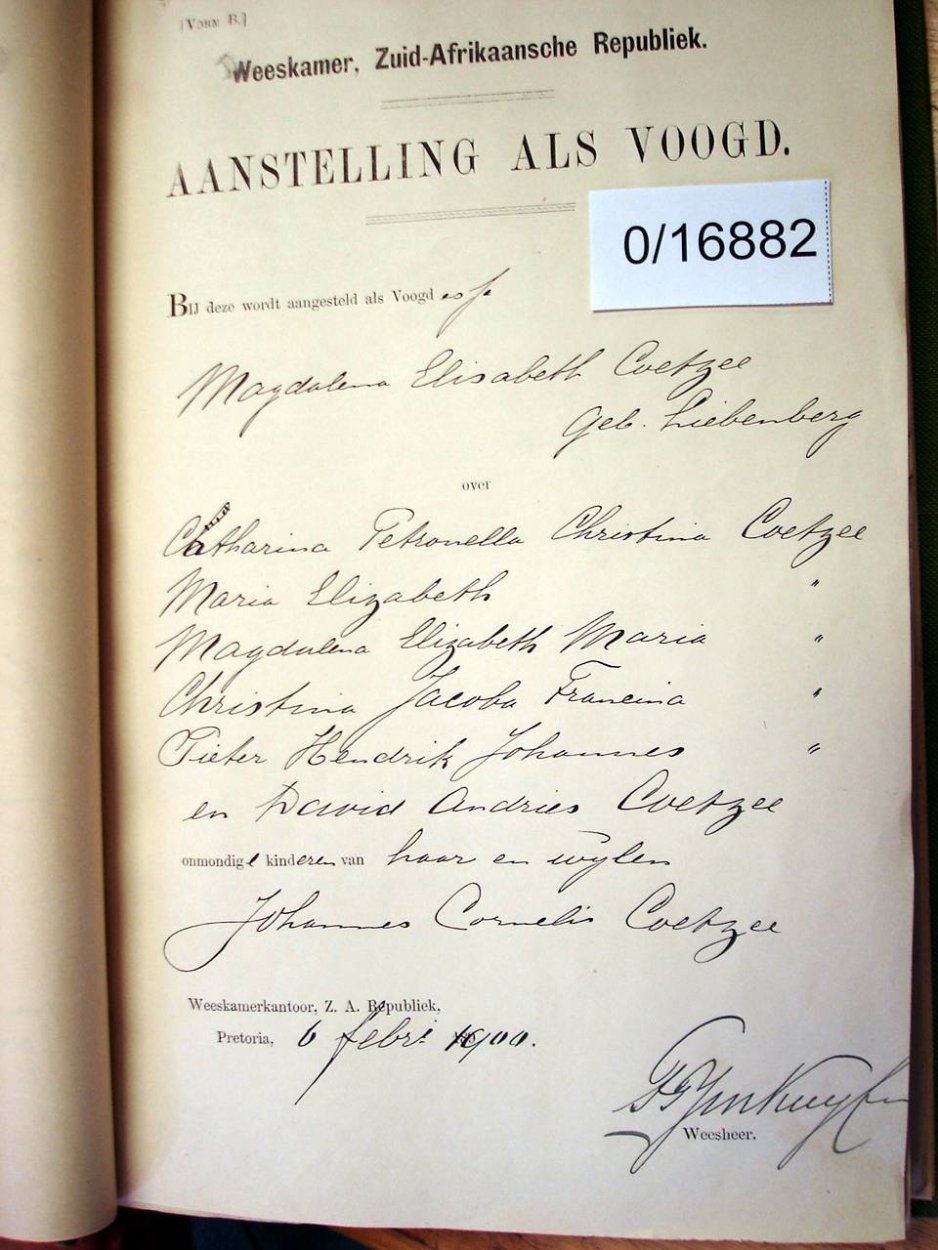 [VORM B.]
Weeskamer, Zuid-Afrikaansche Republiek.
AANSTELLING ALS VOOGD.
0/16882
BIJ deze wordt aangesteld als Voogd esse
Magdalena Elisabeth Coetzee
Geb. Liebenberg
over
Catharina Petronella Christina Coetzee
Maria Elizabeth "
Magdalena Elizabeth Maria "
Christina Jacoba Francina "
Pieter Hendrik Johannes "
en David Andries Coetzee
onmondige kinderen van haar en wylen
Johannes Cornelis Coetzee
Weeskamerkantoor, Z. A. Republiek,
Pretoria, 6 febri 1900.
Weesheer.